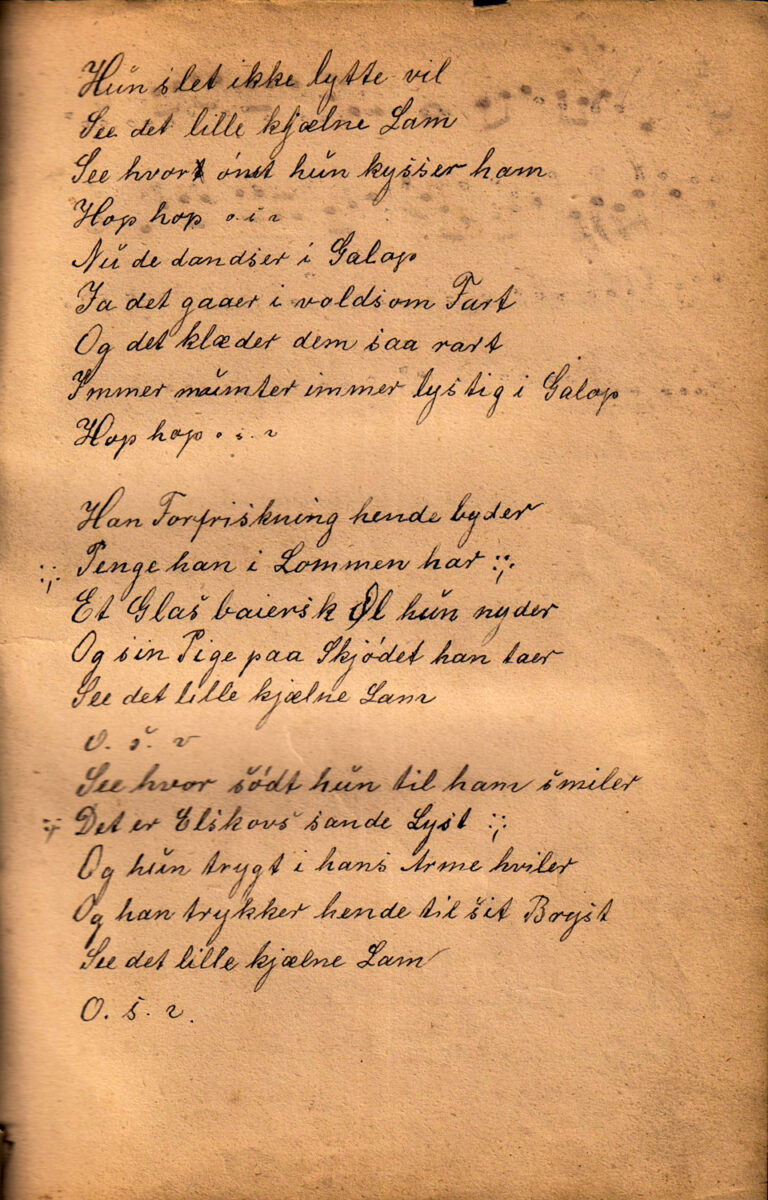 Hun slet ikke lytte vil
See det lille kjælne Lam
See hvor ömt hun kysser ham
Hop hop o. s. v
Nu de dandser i Galop
Ja det gaaer i voldsom Fart
Og det klæder dem saa rart
Immer munter immer lystig i Galop
Hop hop o. s. v
Han Forfriskning hende byder
:,: Penge han i Lommen har :,:
Et Glas baiersk Øl hun nyder
Og sin Pige paa Skjödet han taer
See det lille kjælne Lam
O. s. v
See hvor södt hun til ham smiler
:,: Det er Elskovs sande Lyst :,:
Og hun trygt i hans Arme hviler
Og han trykker hende til sit Bryst
See det lille kjælne Lam
O. s. v.